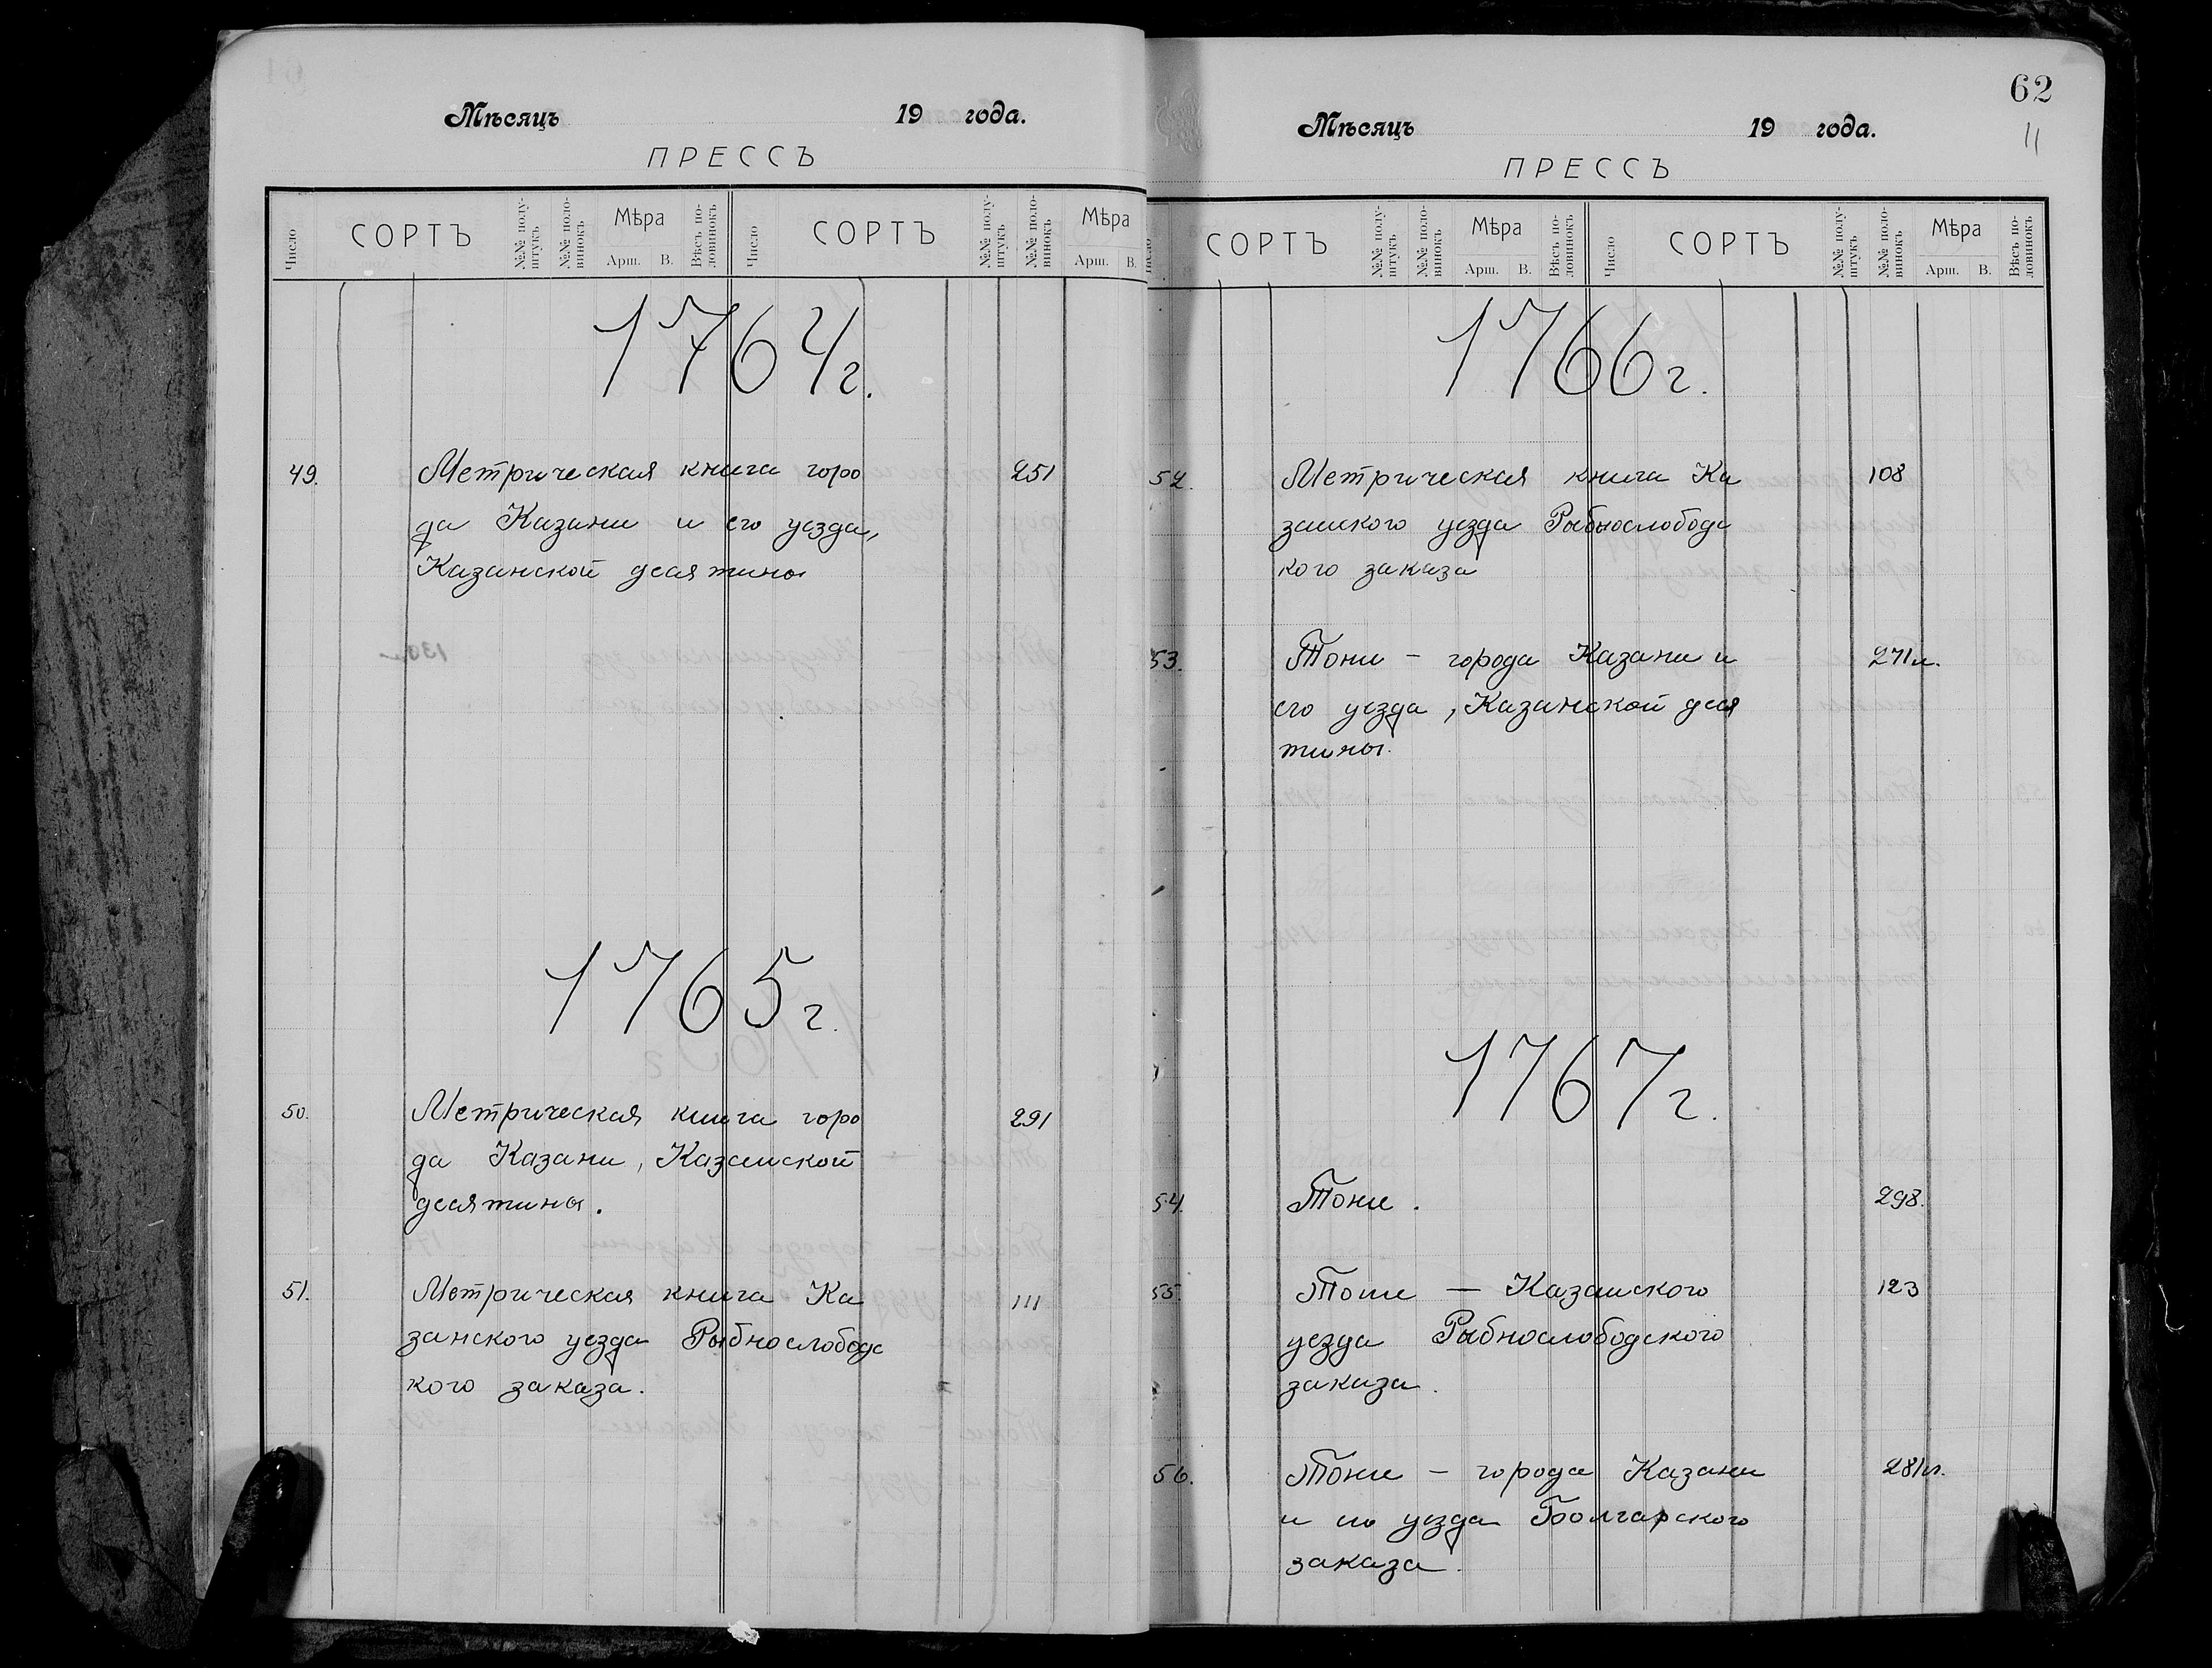 Мѣсяцъ 19 года.
ПРЕССЪ
Число СОРТЪ №№ полу-штукъ №№ поло-винокъ Мѣра Арш. В. Вѣсъ по-ловинокъ Число СОРТЪ №№ полу-штукъ №№ поло-винокъ Мѣра Арш. В.
1764г.
49. Метрическая книга горо 251
да Казани и его уезда,
Казанской десятины
1765г.
50. Метрическая книга горо 291
да Казани, Казанской
десятины.
51. Метрическая книга Ка 111
занского уезда Рыбнослободс
кого заказа.
62
11
Мѣсяцъ 19 года.
ПРЕССЪ
Число СОРТЪ №№ полу-штукъ №№ поло-винокъ Мѣра Арш. В. Вѣсъ по-ловинокъ Число СОРТЪ №№ полу-штукъ №№ поло-винокъ Мѣра Арш. В. Вѣсъ по-ловинокъ
1766г.
52. Метрическая книга Ка 108
занского уезда Рыбнослободс
кого заказа
53. Тоже – города Казани и 271л.
его уезда, Казанской деся
тины.
1767г.
54. Тоже. 298.
55. Тоже — Казанского 123
уезда Рыбнослободского
заказа.
56. Тоже – города Казани 281л.
и его уезда Болгарского
заказа.